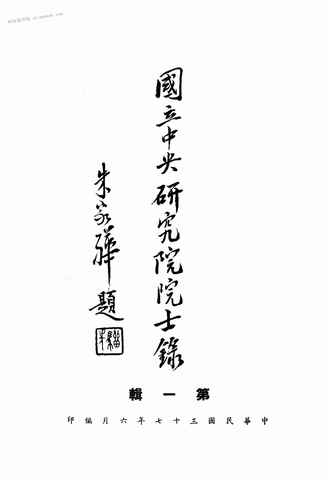 國立中央研究院院士錄
朱家驊題
第一輯
中華民國三十七年六月編印